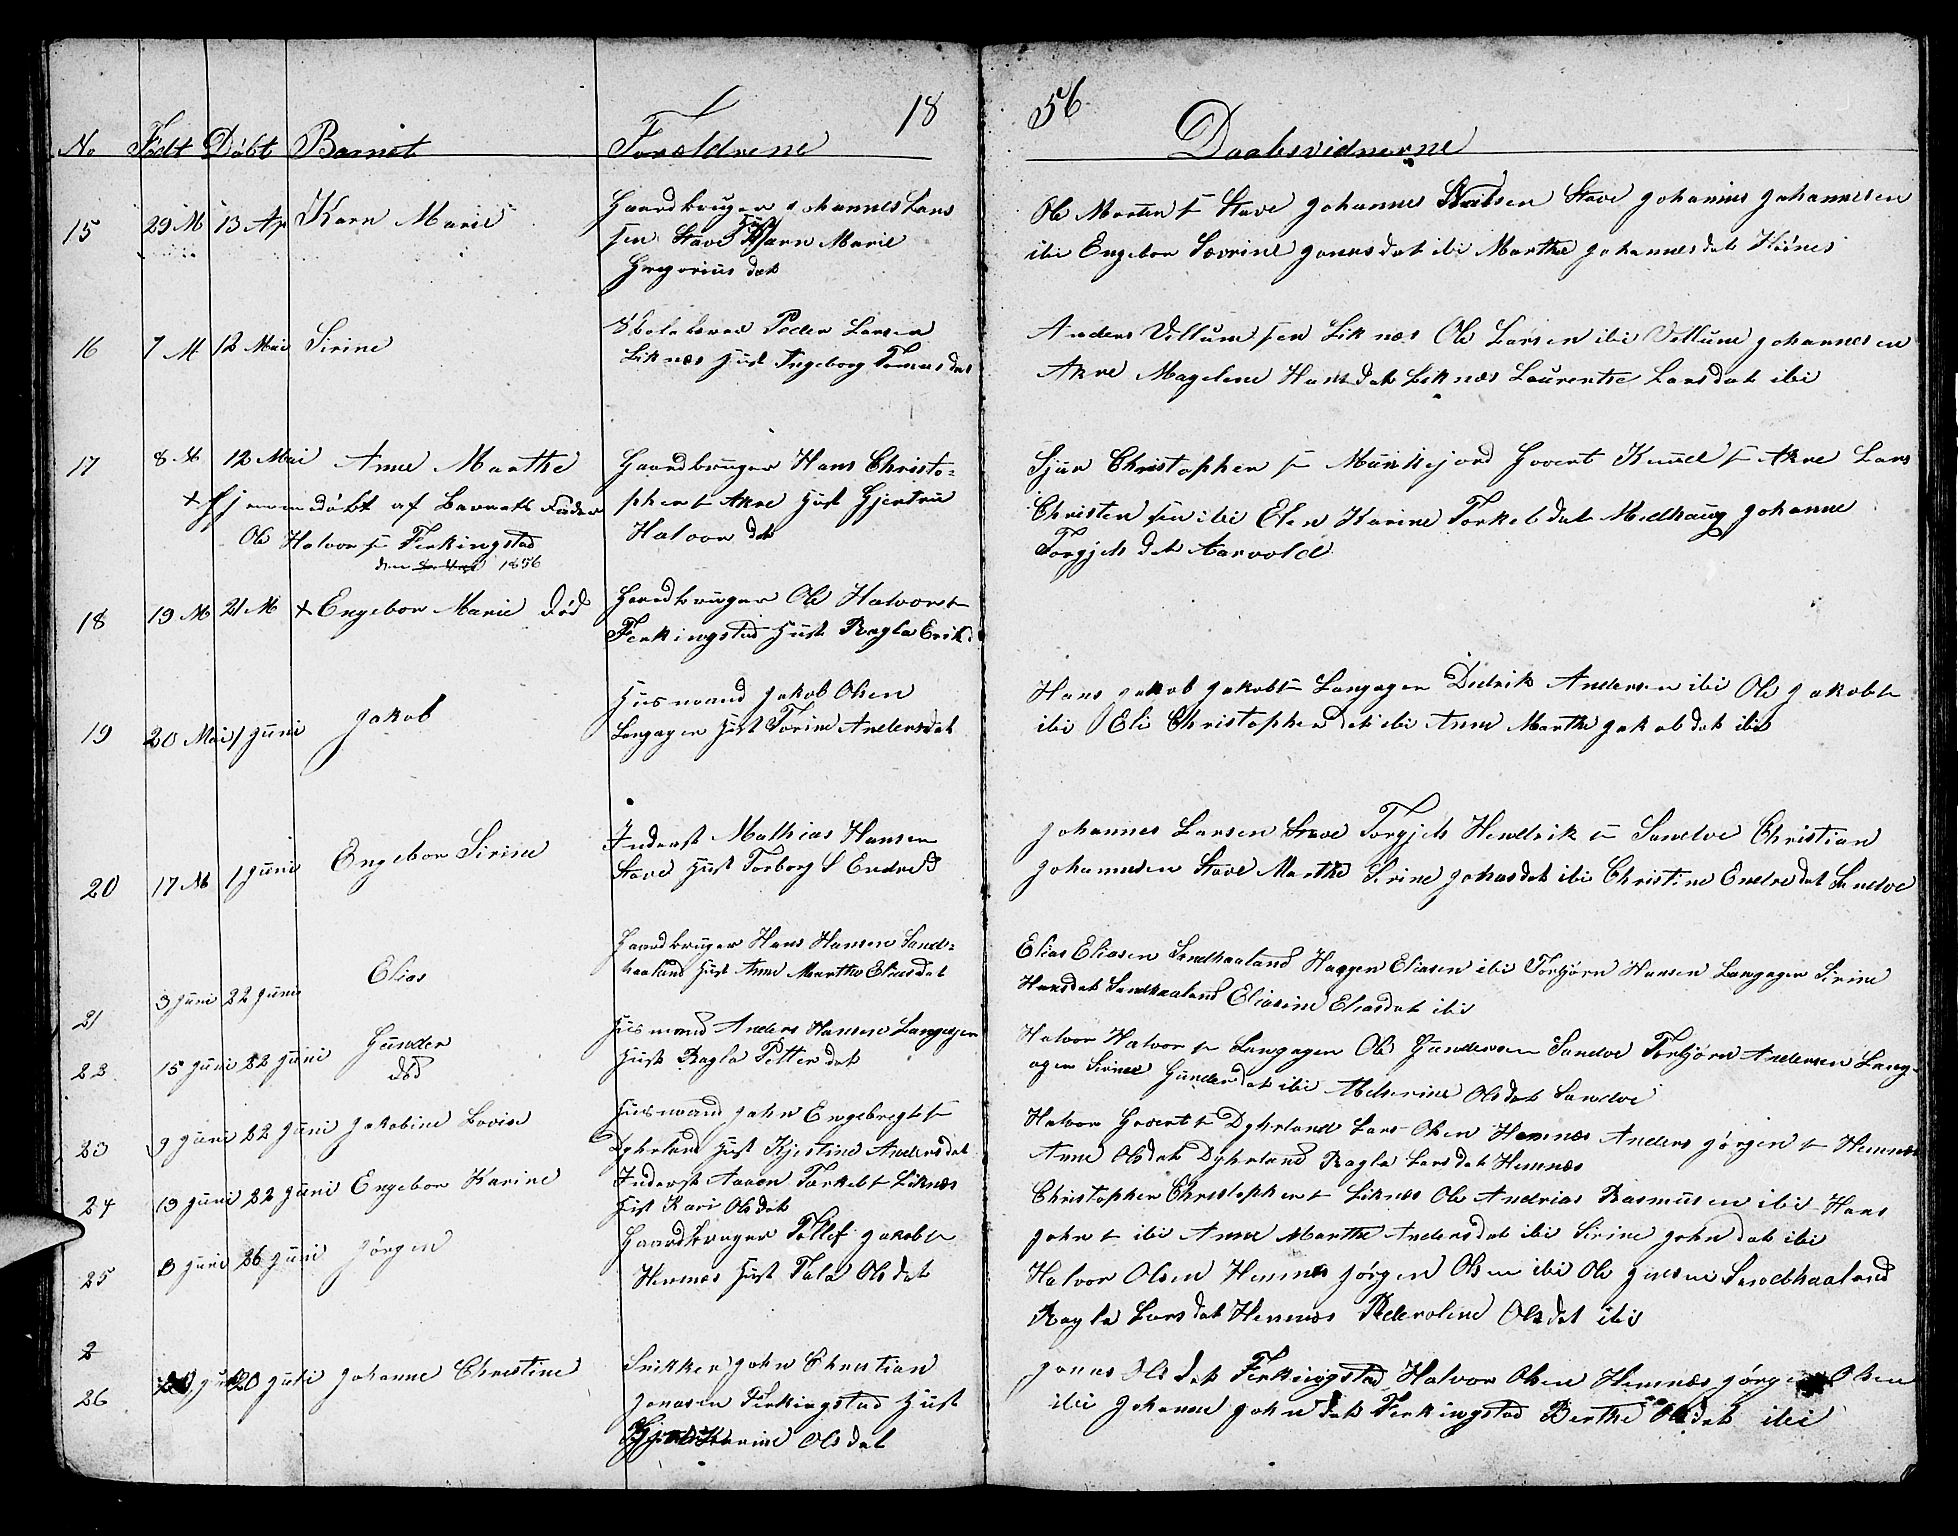 18 56
No Født Døbt Barnet Forældrene Daabsvidnerne
15 29 M 13 Ap Karn Marie
Gaardbruger Johannes Lars
sen Stave Hust Karn Marie
Gregorius dat
Ole Morten s Stave Johannes Stave Johannes Johannesen
ibi Engebor Sevrine Jonas dat ibi Marthe Johannes dat Hiines
16 7 M 12 Mai Sirine
Skolelærer Peder Larsen
Liknæs Hust Ingeborg Tomas dat
Anders Villum sen Liknæs Ole Larsen ibi Villum Johannesen
Akre Magelene Hans dat Liknæs Laurentse Lars dat ibi
17 8 M 12 Mai Anne Marthe
+ Hjemmedøbt af Barnets Fader
Ole Halvor s Ferkingstad
den 1856
Gaardbruger Hans Christo-
pher s Akre Hust Gjertrue
Halvor dat
Sjur Christopher s Munkejord Govert Knud s Akre Lars
Christen sen ibi Elen Karine Torkel dat Medhaug Johanne
Torgjels dat Aarvold
18 19 M 21 M + Engebor Marie død
Gaardbruger Ole Halvor s
Ferkingstad Hust Ragla Erik d
19 20 Mai 1 Juni Jakob
Husmand Jakob Olsen
Langager Hust Torine Anders dat
Hans Jakob Jakob s Langager Didrik Andersen ibi Ole Jakob s
ibi Eli Christopher dat ibi Anne Marthe Jakob dat ibi
20 17 M 1 Juni Engebor Sirine
Inderst Mathias Hansen
Stave Hust Torborg S Endre d
Johannes Larsen Stave Torgjels Hendrik s Sandve Christian
Johannesen Stave Marthe Sirine Johasdat ibi Christine Endre dat Sandve
21 3 Juni 22 Juni Elias
Gaardbruger Hans Hansen Sand-
haaland Hust Anne Marthe Elias dat
Elias Eliasen Sandhaaland Haggen Eliasen ibi Torbjørn Hansen Langager Sirine
Hansdat Sandhaaland Eliasine Eliasdat ibi
22 15 Juni 22 Juni Gunder
død
Husmand Anders Hansen Langager
Hust Ragla Petter dat
Halvor Halvor s Langager Ole Gundersen Sandve Torbjørn Andersen Lang-
ager Sirine Gunder dat ibi Olsdat Sandve
23 9 Juni 22 Juni Jakobine Lovise
Husmand John Engebregt s
Dyhrland Hust Kjestine Anders dat
Halvor Govert s Dyhrland Lars Olsen Hemnæs Anders Jørgen s Hemnæs
Anne Olsdat Dyhrland Ragla Lars dat Hemnæs
24 13 Juni 22 Juni Engebor Karine
Inderst Aaron Torkel s Liknæs
Hust Kari Olsdat
Christopher Christopher s Liknæs Ole Andrias Rasmusen ibi Hans
John s ibi Anne Marthe Andersdat ibi Sirine John dat ibi
25 8 Juni 26 Juni Jørgen
Gaardbruger Tollef Jakob s
Hemnæs Hust Tala Ols dat
Halvor Olsen Hemnæs Jørgen Olsen ibi Ole Jensen Sandhaaland
Ragla Lars dat Hemnæs Pederoline Olsdat ibi
2
26 20 Juli Johanne Christine
Snikker John Christian
Jonasen Ferkingstad Hust
Karine Olsdat
Jonas Ols dat Ferkingstad Halvor Olsen Hemnæs Jørgen Olsen
ibi Johanne John dat Ferkingstad Berthe Olsdat ibi